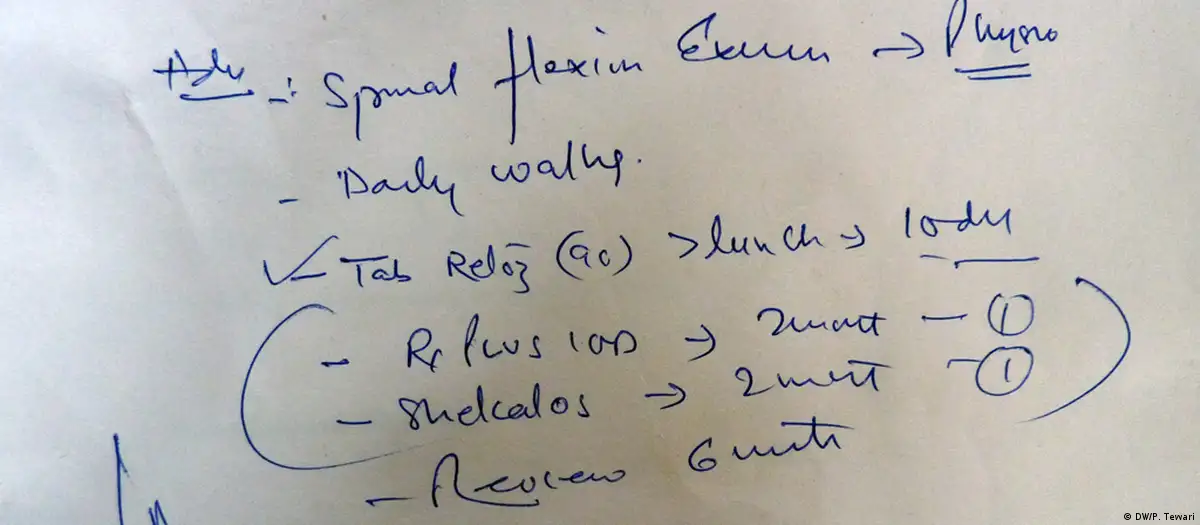 Adv -: Spinal flexion Exercise → Physio
- Daily walking.
✓ Tab Reloz (90) > lunch → 10 day
- Rx Plus 1 OD → 2 month - ①
- Shelcal OS → 2 month - ①
- Review 6 months
© DW/P. Tewari